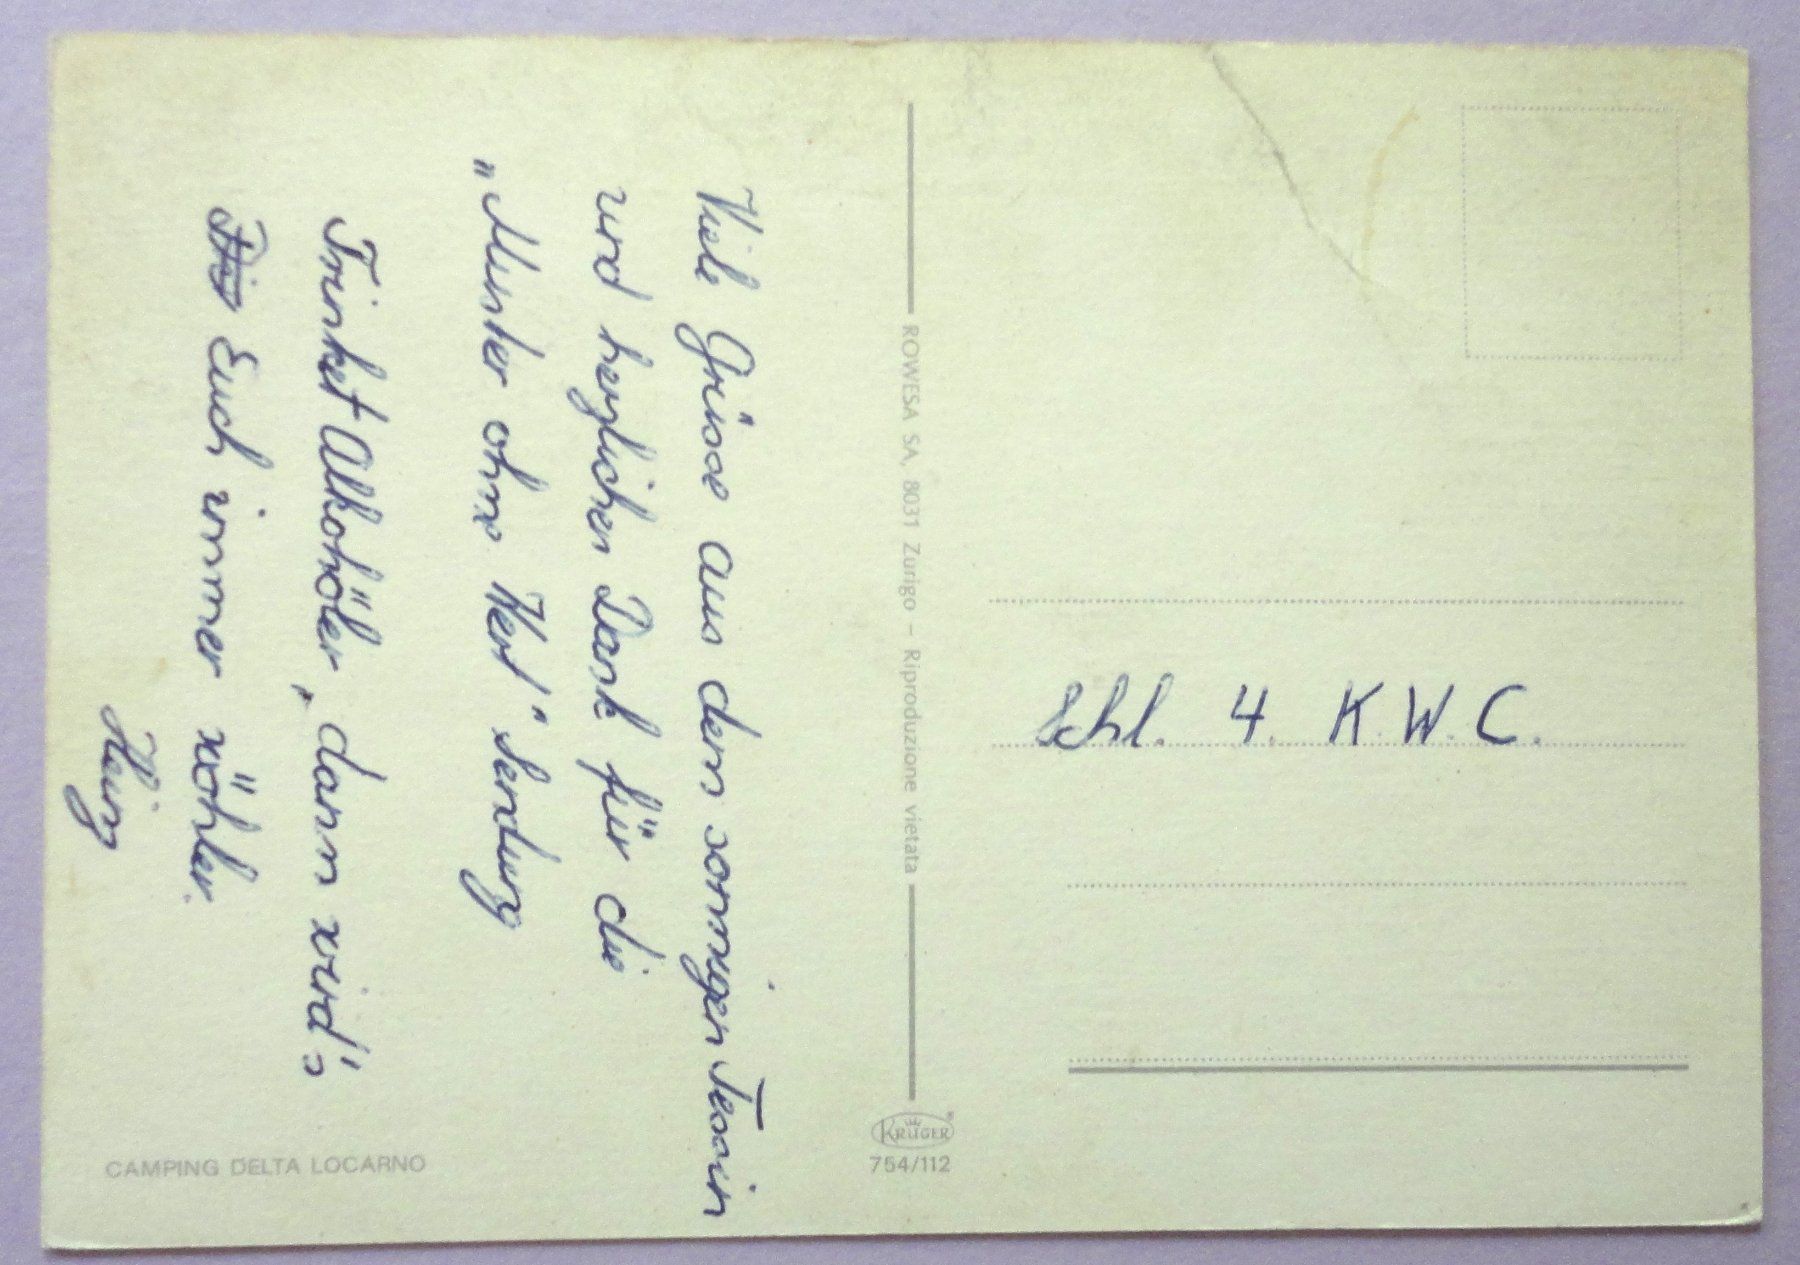 Viele Grüsse aus dem sonnigen Tessin
und herzlichen Dank für die
„Muster ohne Wert" Sendung
Trinket Alkohöler, dann wird's
Euch immer wöhler.
Heinz
ROWESA SA, 8031 Zurigo – Riproduzione vietata
Schl. 4. K.W.C.
KRÜGER
754/112
CAMPING DELTA LOCARNO